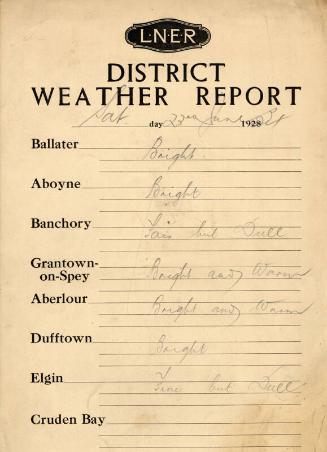 L·N·E·R
DISTRICT
WEATHER REPORT
Sat day 23rd June 1928
Ballater Bright.
Aboyne Bright
Banchory Fair but Dull
Grantown-
on-Spey Bright and Warm
Aberlour Bright and Warm
Dufftown Bright
Elgin Fine but Dull
Cruden Bay